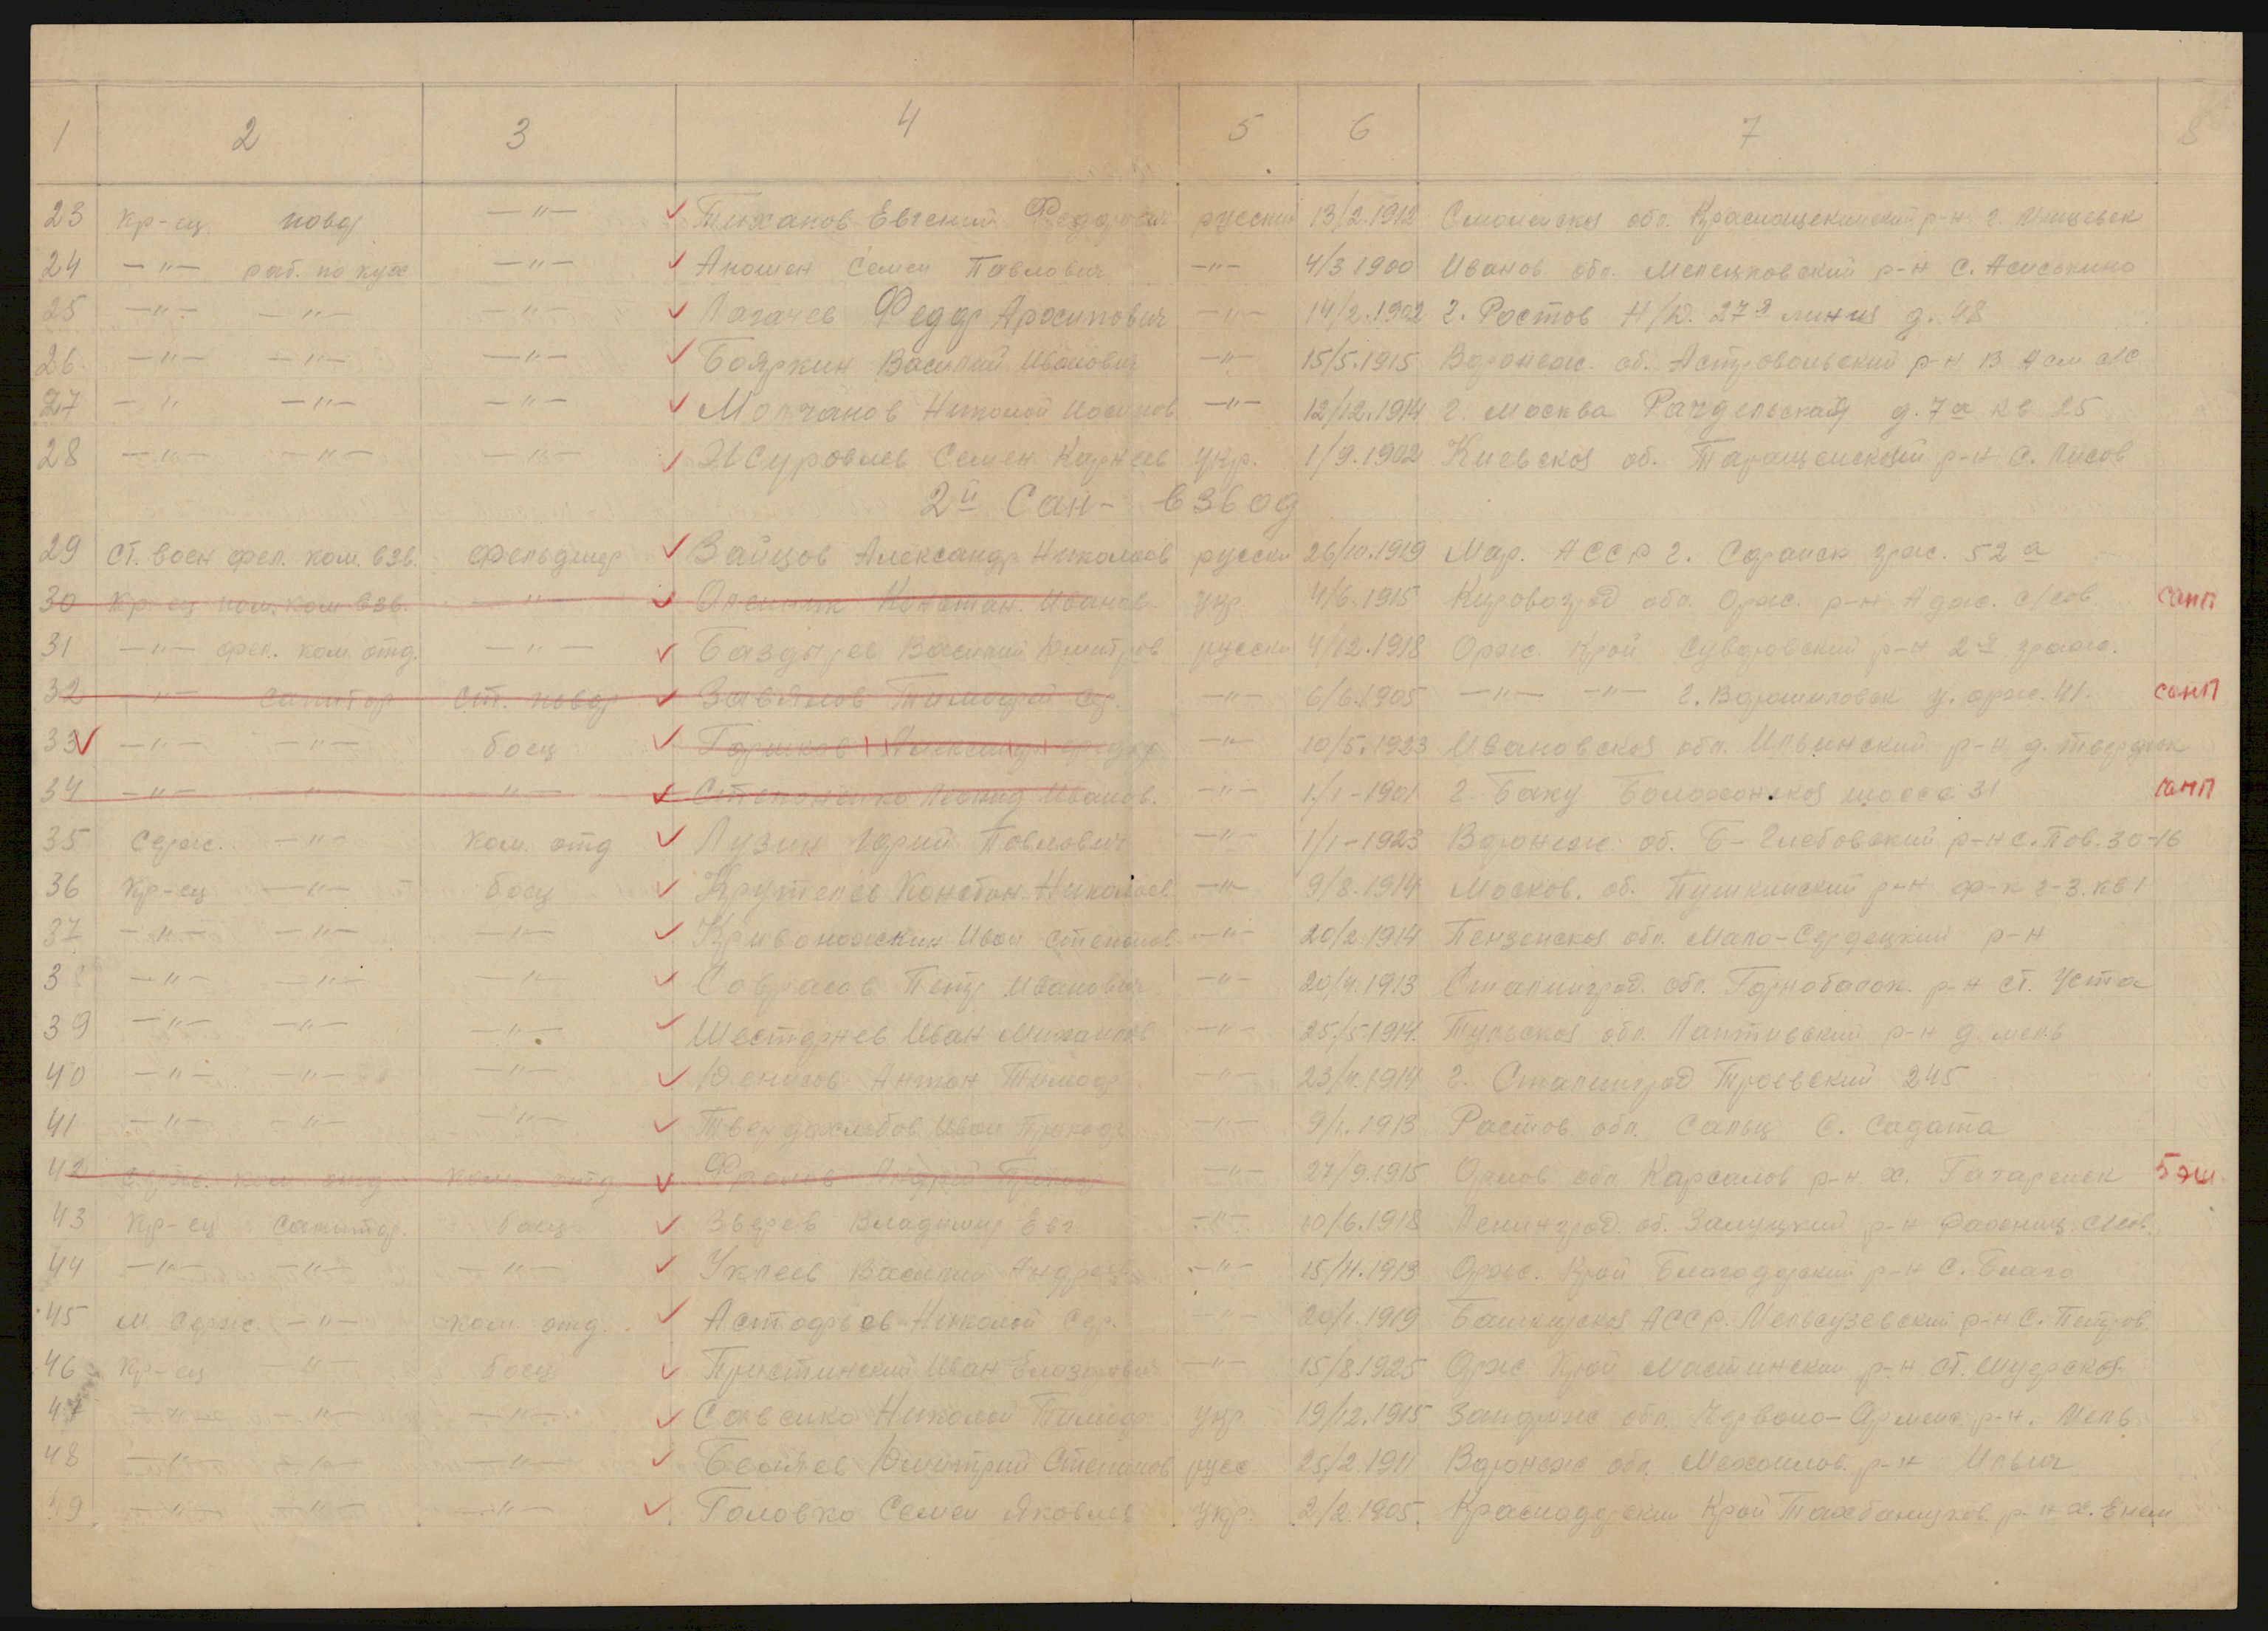 1 2 3 4 5 6 7 8
23 Кр-ец повар —"— Тиханов Евгений Федорович русский 13/2.1912 Смоленская обл. р-н г.
24 —"— раб. по кухне —"— Аношен Семен Павлович —"— 4/3 1900 Иванов обл. р-н с.
25 —"— —"— —"— Лагачев Федор Архипович —"— 14/2.1902 г. Ростов Н/Д. 27я линия д. 48
26 —"— —"— —"— Бояркин Василий Иванович —"— 15/5.1915 Воронеж. об. р-н
27 —"— —"— —"— Молчанов Николай Иосипов —"— 12/12.1914 г. Москва д. 7а кв 25
28 —"— —"— —"— Журовлев Семен Карнеев укр. 1/9.1902 Киевская об. Таращенский р-н с. Лисов
2й Сан-взвод
29 ст. воен фел. ком. взв. фельдшер Зайцов Александр Николаев русски 26/10.1919 Мар. АССР г. Саранск 52а
30 Кр-ец пом. ком взв. —"— Олейник Констан. Иванов. укр 4/6.1915 Кировоград обл. р-н с/сов санп
31 —"— фел. ком. отд. —"— Баздырев Василий Дмитров русски 4/12.1918 Орж. Край Суворовский р-н
32 —"— санитар ст. повар Завялов Тимофей —"— 6/6.1905 —"— —"— г. Ворошиловск у. орж. 41. санп
33 —"— —"— боец Горшков Александр —"— 10/5.1923 Ивановская обл. Ильинский р-н д.
34 —"— —"— —"— Степоненко Леонид Иванов. —"— 1/1-1901 г Баку шоссе 31 санп
35 Серж. —"— ком. отд Лузин Юрий Павлович —"— 1/1-1923 Воронеж. об. р-н с.
36 Кр-ец —"— боец Крутелев Констан. Николаев —"— 9/8.1914 Москов. об. Пушкинский р-н кв 1
37 —"— —"— —"— Кривоножкин Иван Степанов —"— 20/2.1914 Пензенская обл. Мало-Сердецкий р-н
38 —"— —"— —"— Саврасов Петр Иванович —"— 20/4.1913 Сталинград. обл. р-н ст.
39 —"— —"— —"— Шестернев Иван Михайлов —"— 25/5.1914. Тульская обл. Лаптивский р-н д.
40 —"— —"— —"— Денисов Антон Тимоф. —"— 23/4.1914 г. Сталинград 245
41 —"— —"— —"— Твердохлебов Иван Прокоф —"— 9/1.1913 Ростов обл. Сальц с.
42 Серж. ком отд ком. отд Фролов Андрей —"— 27/9.1915 обл р-н х. 5 эш
43 Кр-ец санитар. боец Зверев Владимир Евг —"— 10/6.1918 Ленинград. об. Залуцкий р-н
44 —"— —"— —"— Уклеев Василий Андреев —"— 15/4.1913 Орж. Край Благодарский р-н с.
45 м. серж. —"— ком. отд. Астофьев Николай Сер. —"— 20/1.1919 Башкирская АССР. Мелеузевский р-н с. Петров.
46 Кр-ец —"— боец Пристинский Иван —"— 15/8.1925 Орж Край р-н ст.
47 —"— —"— —"— Савенко Николай Тимоф. укр 19/12.1915 обл. Червоно-Армейс р-н.
48 —"— —"— —"— Беляев Дмитрий Степанов русс 25/2.1911 Воронеж обл р-н Ильич
49 —"— —"— —"— Головко Семен Яковлев укр. 2/2.1905. Краснодарский Край р-н х. Енем